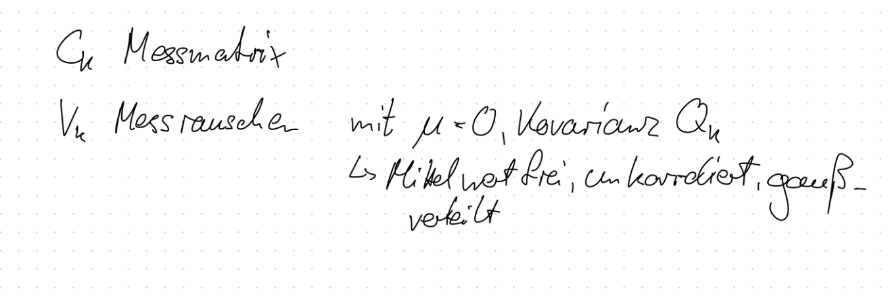 C_k Messmatrix
V_k Messrauschen mit μ = 0, Kovarianz Q_k
↳ Mittelwertfrei, unkorreliert, gauß-
verteilt